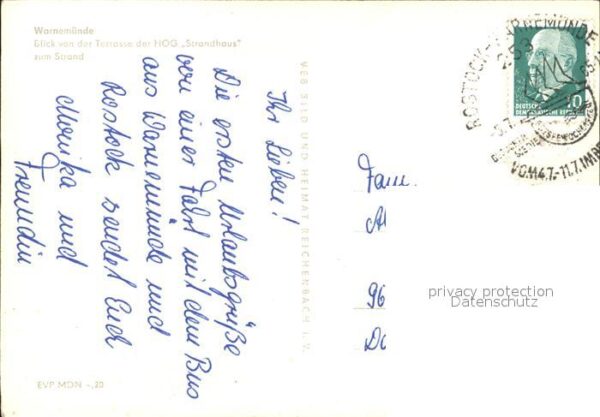 Warnemünde
Blick von der Terrasse der HOG „Strandhaus"
zum Strand
Ihr Lieben!
Die ersten Urlaubsgrüße
von einer Fahrt mit dem Bus
aus Warnemünde und
Rostock sendet Euch
Monika und
Freundin
EVP MDN -,20
VEB BILD UND HEIMAT REICHENBACH I. V.
ROSTOCK-WARNEMÜNDE
253
VOM 4.7.-11.7. IM BE
10
DEUTSCHE
DEMOKRATISCHE REPUBLIK
Fam.
Al
96
Do
privacy protection
Datenschutz